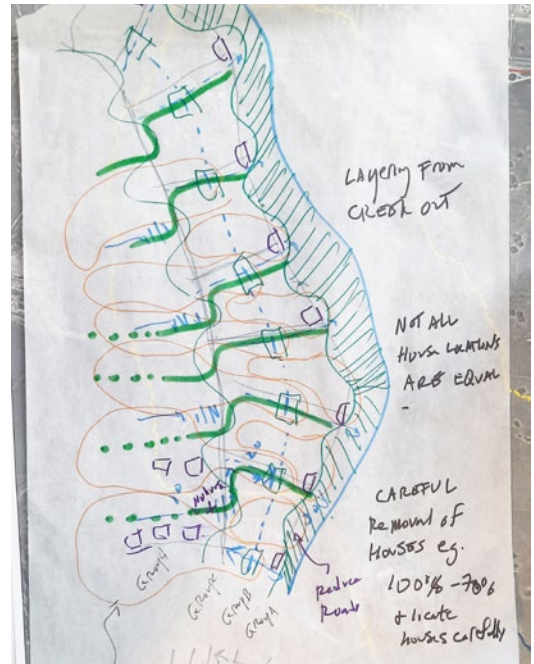 LAyering From
CREEK OUT
NOT ALL
House LOCATIONS
ARE EQUAL
-
CAREFUL
Removal of
Houses eg.
100% - 70%
& locate
houses carefully
Reduce
Roads
Group C
Group B
Group A